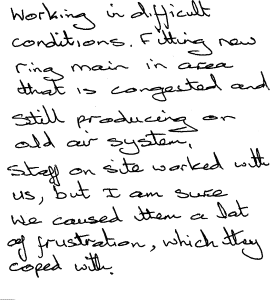 Working in difficult
conditions. Fitting new
ring main in area
that is congested and
still producing on
old air system,
Staff on site worked with
us, but I am sure
we caused them a lot
of frustration, which they
coped with.